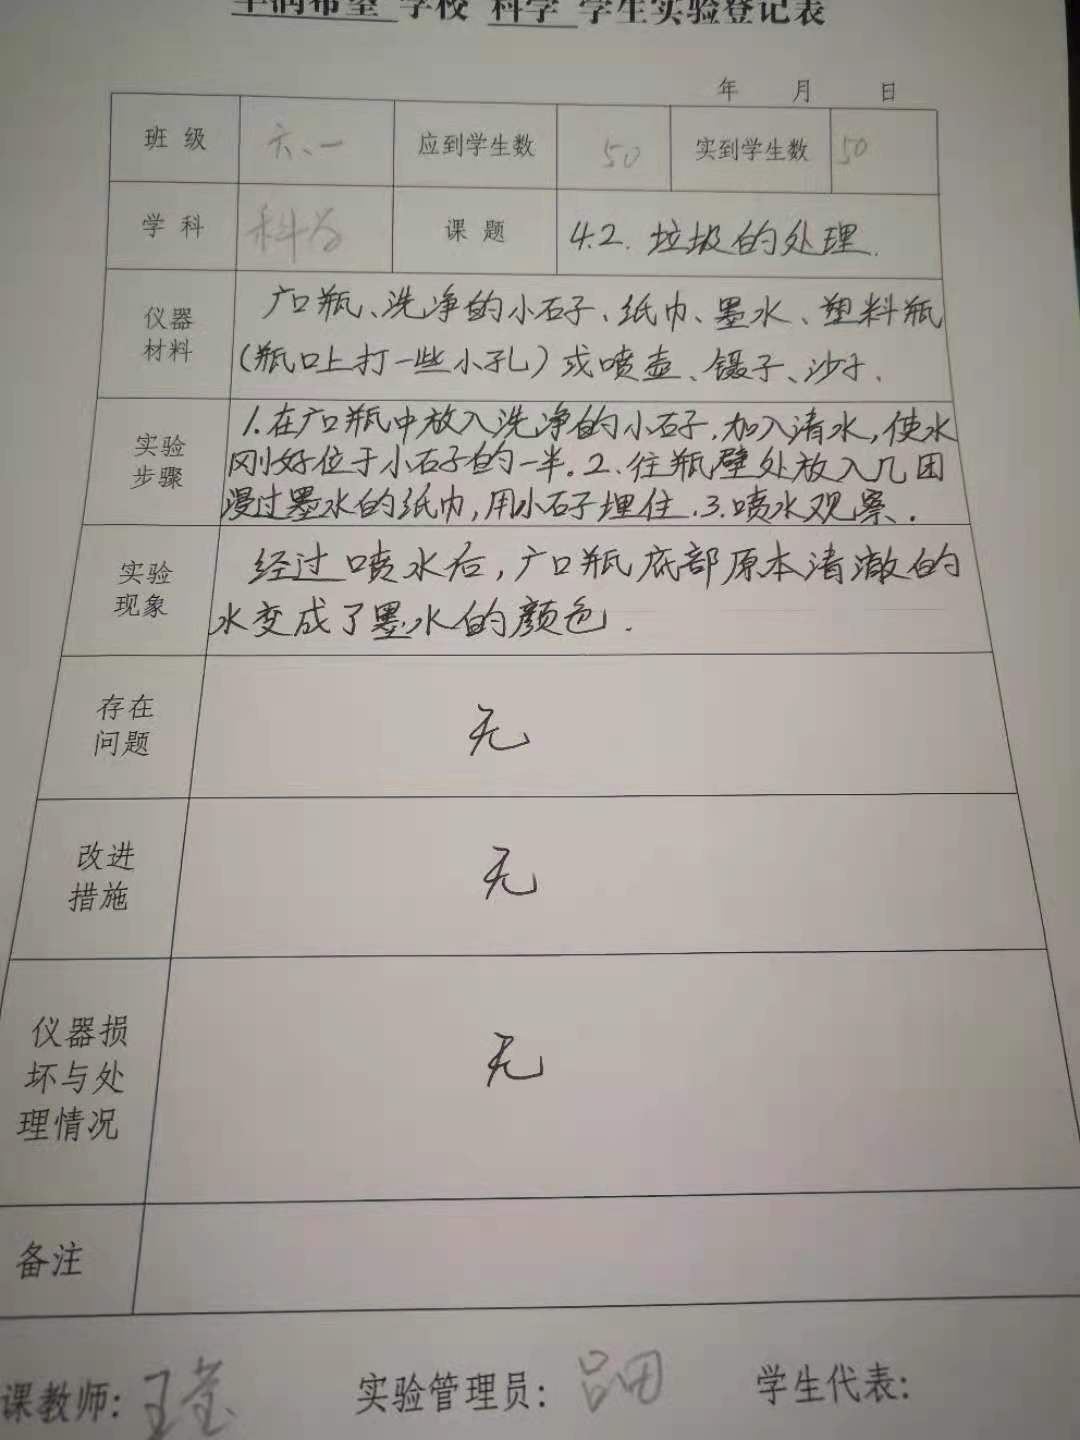 希望 学校 科学 学生实验登记表
年 月 日
班级 六、一 应到学生数 50 实到学生数 50
学科 科学 课题 4.2.垃圾的处理.
仪器材料
广口瓶、洗净的小石子、纸巾、墨水、塑料瓶
(瓶口上打一些小孔)或喷壶、镊子、沙子.
实验步骤
1.在广口瓶中放入洗净的小石子.加入清水,使水
刚好位于小石子的一半.2、往瓶壁处放入几团
浸过墨水的纸巾,用小石子埋住.3.喷水观察.
实验现象
经过喷水后,广口瓶底部原本清澈的
水变成了墨水的颜色.
存在问题
无
改进措施
无
仪器损坏与处理情况
无
备注
课教师: 王莹 实验管理员: 吕田 学生代表: